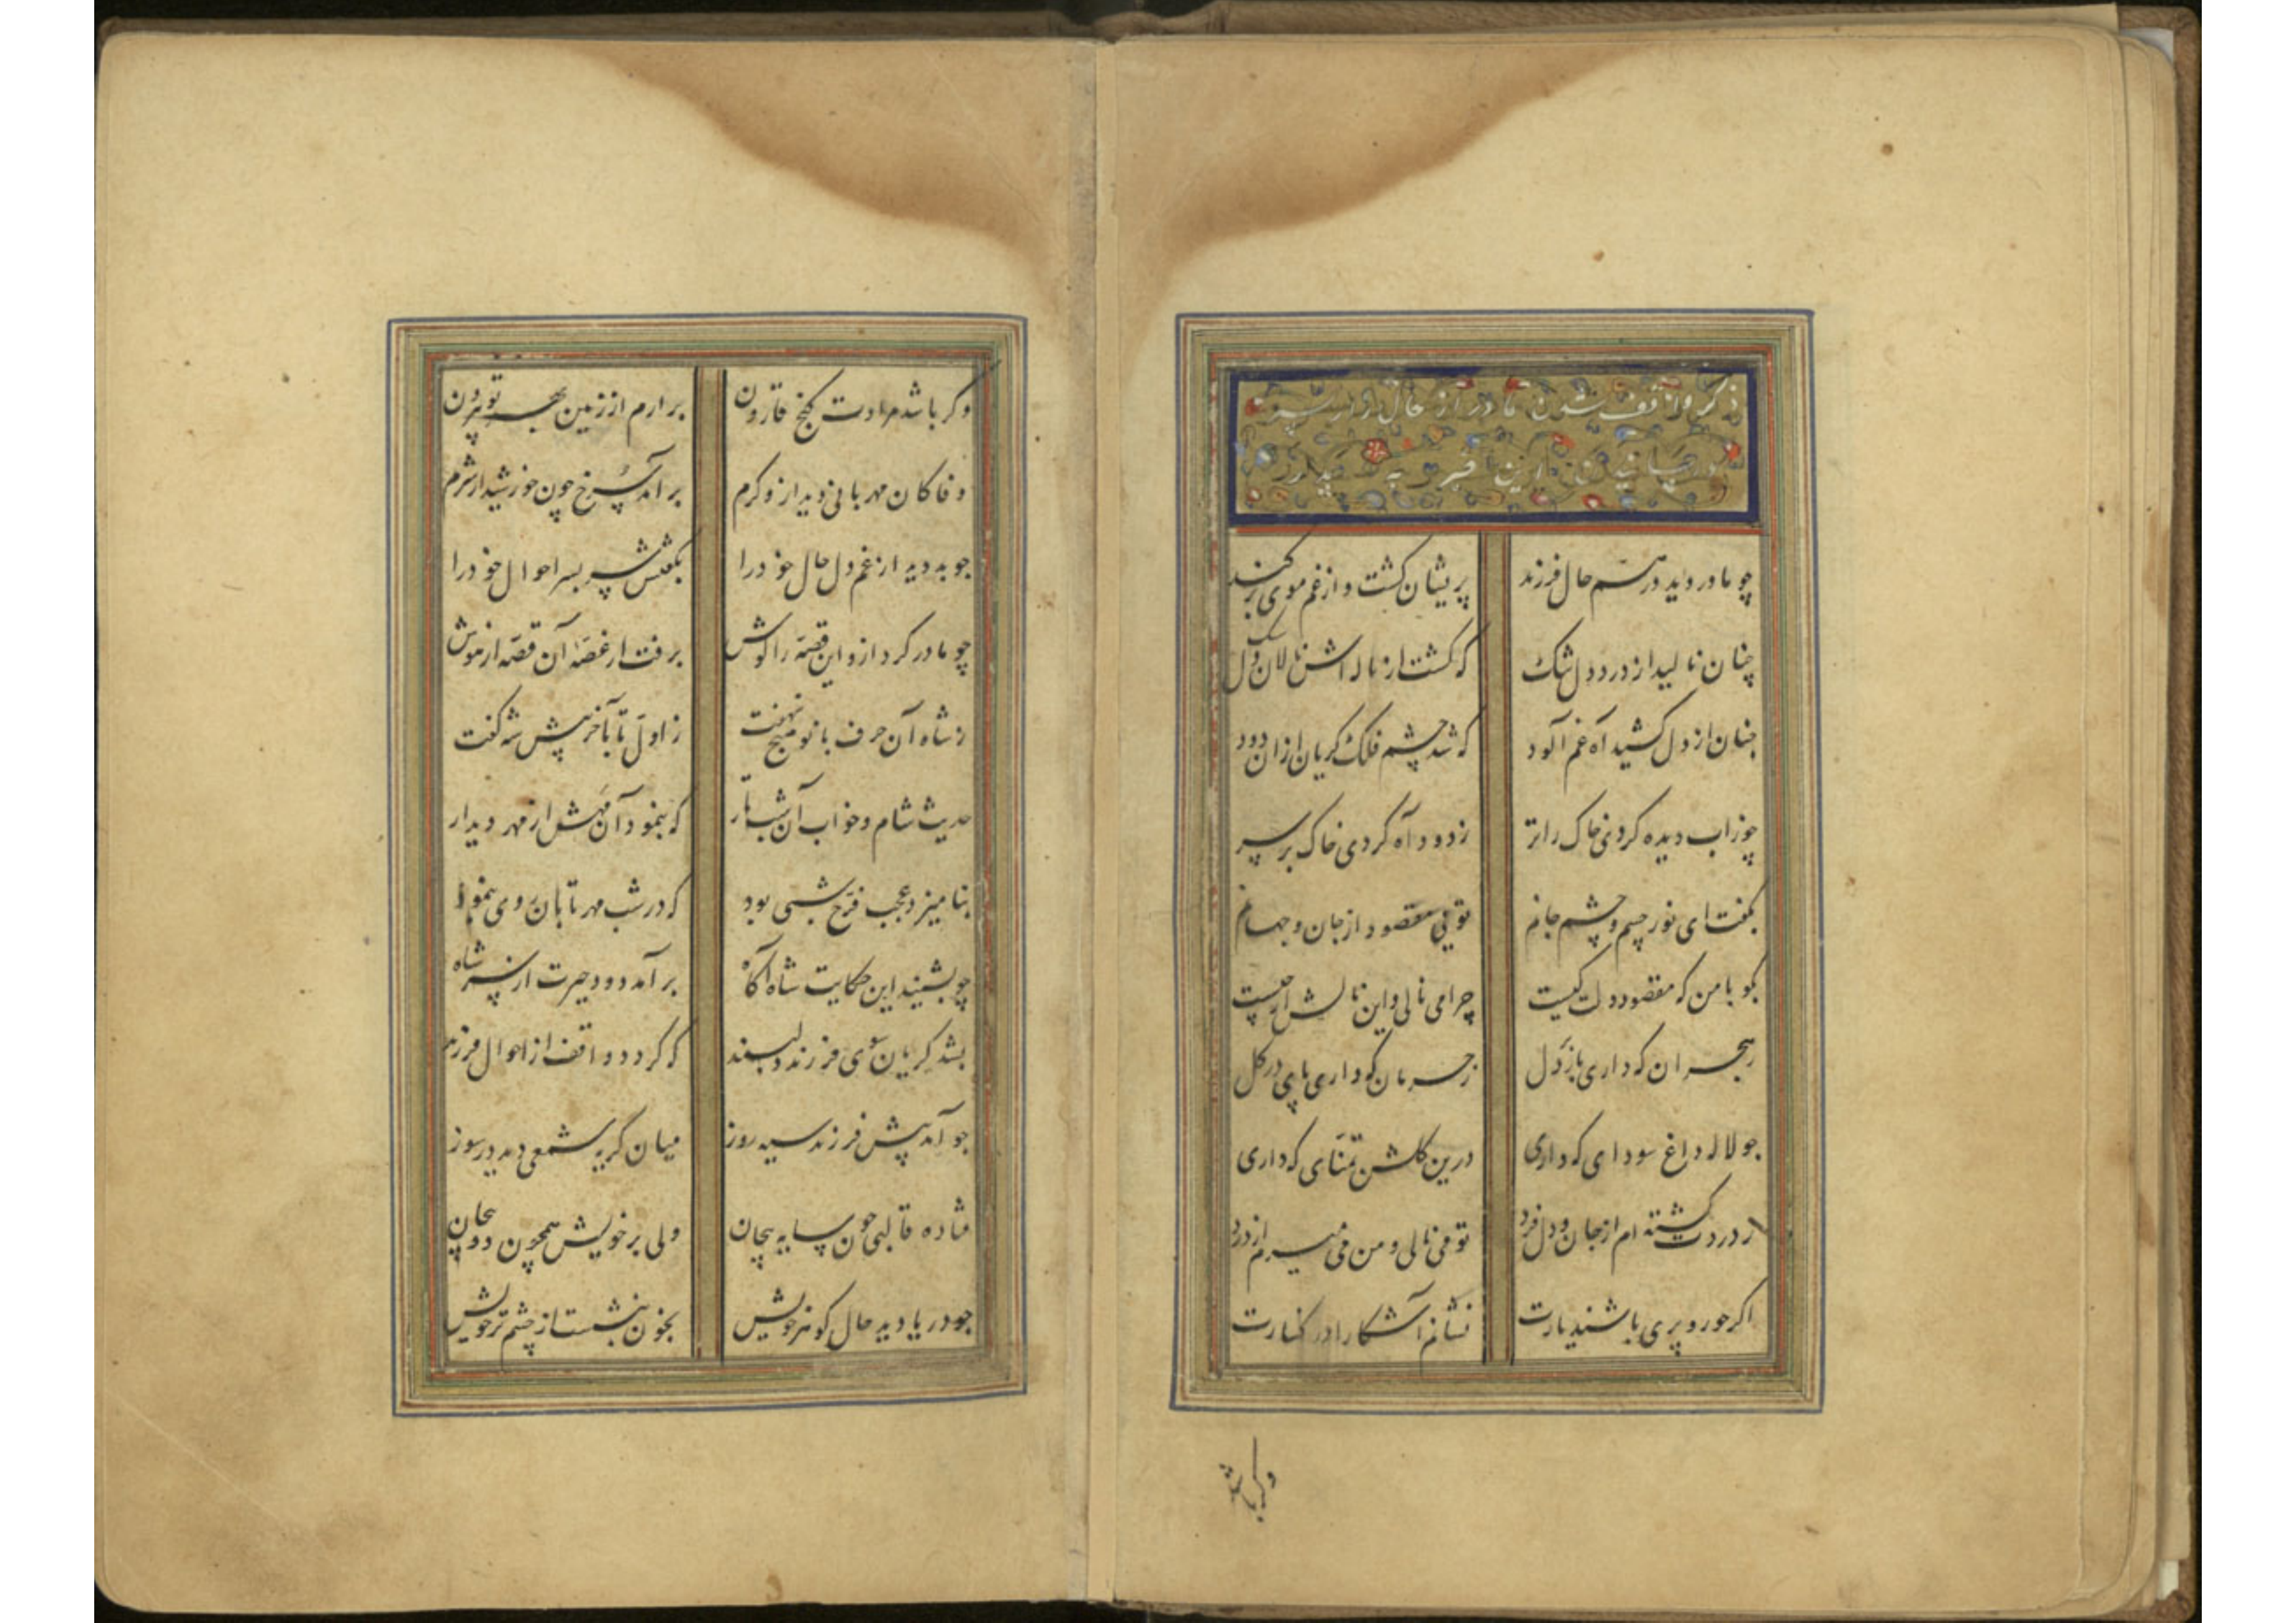 ذکر واقف شدن مادر از حال زار پسر
و رسانیدن این خبر به پدر
چو مادر دید در هم حال فرزند پریشان کشت و از غم موی برکند
چنان نالید از درد دل تنک که کشت از ناله اش نالان دل سنک
چنان از دل کشید آه غم آلود که شد چشم فلک کریان ازان دود
چو زاب دیده کردی خاک را تر ز دود آه کردی خاک بر سر
بکفت ای نور چشم و چشم جانم تویی مقصود از جان و جهانم
بکو با من که مقصود دلت کیست چرا می نالی و این نالش از چیست
ز هجران که داری بار دل ز حرمان که داری پای در کل
چو لاله داغ سودای که داری درین کلشن تمنای که داری
ز دردت کشته ام از جان و دل فرد تو می نالی و من می میرم از درد
اکر حور و پری باشند یارت نشانم آشکارا در کنارت
وکر باشد
وکر باشد مرادت کنج قارون برارم از زمین بهر تو بیرون
وفا کان مهربانی دید ازو کرم برآمد سرخ چون خورشید از شرم
چو بد دید از غم دل حال خود را بکفتش سر بسر احوال خود را
چو مادر کرد ازو این قصه را کوش برفت از غصه آن قصه از هوش
ز شاه آن حرف بانو هیچ ننهفت ز اول تا بآخر پیش شه کفت
حدیث شام و خواب آن شب تار که بنمود آن مهش از مهر دیدار
بنامیزد عجب فرخ شبی بود که در شب مهر تابان روی بنمود
چو بشنید این حکایت شاه آکاه برآمد دود حیرت از سر شاه
بشد کریان سوی فرزند دلبند که کردد واقف از احوال فرزند
چو آمد پیش فرزند سیه روز میان کریه شمعی دید در سوز
فتاده قالبی چون سایه بیجان ولی بر خویش همچون دود پیچان
چو دریا دید حال کوهر خویش بخون بنشست از چشم تر خویش